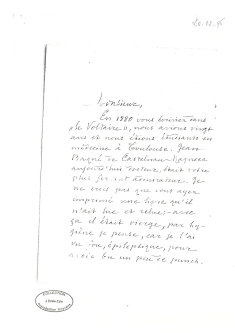 Monsieur,
En 1880 vous écriviez dans
"le Voltaire", nous avions vingt
ans et nous étions étudiants en
médecine à Toulouse. Jean
de Castelnau-Magnoac
aujourd'hui docteur, était votre
plus fervent admirateur. Je
ne crois pas que vous ayez
imprimé une ligne qu'il
n'ait lue et relue
ça il était vierge, par hy-
giène je pense, car je l'ai
vu fou, épileptique, pour
avoir bu un peu de punch.
COLLECTION